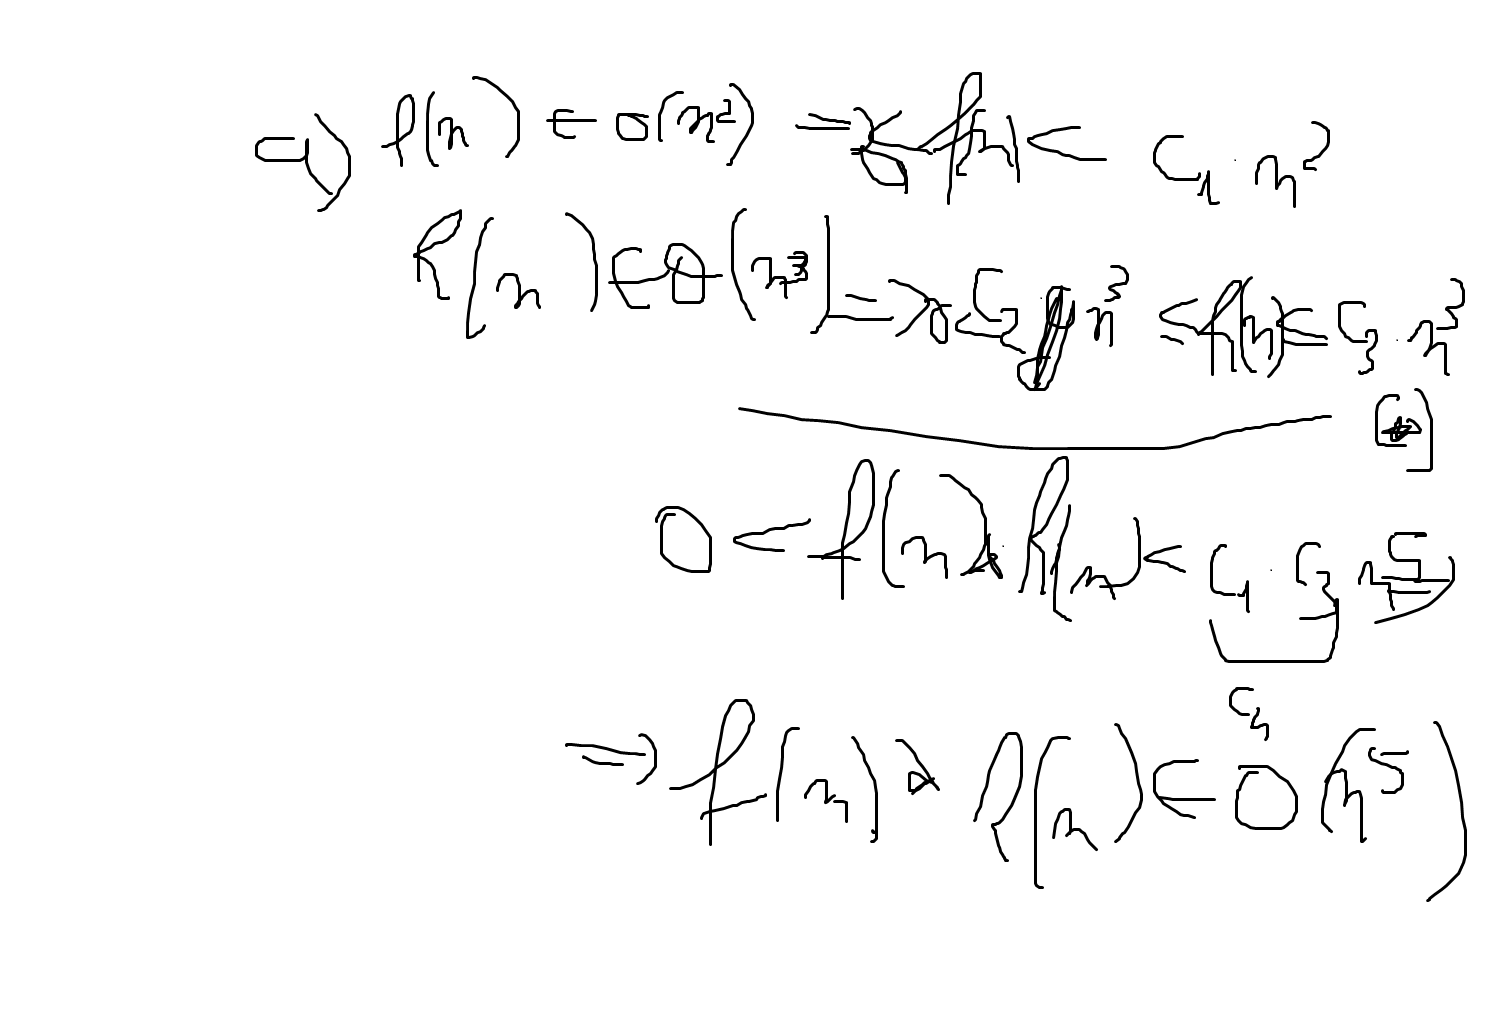 c) f(n) ∈ o(n²) => 0 ≤ f(n) < c₁ · n²
h(n) ∈ Θ(n³) => 0 ≤ c₂ n³ ≤ h(n) ≤ c₃ · n³
[*]
0 < f(n) * h(n) < c₁ · c₃ n⁵
c₄
=> f(n) * h(n) ∈ O(n⁵)